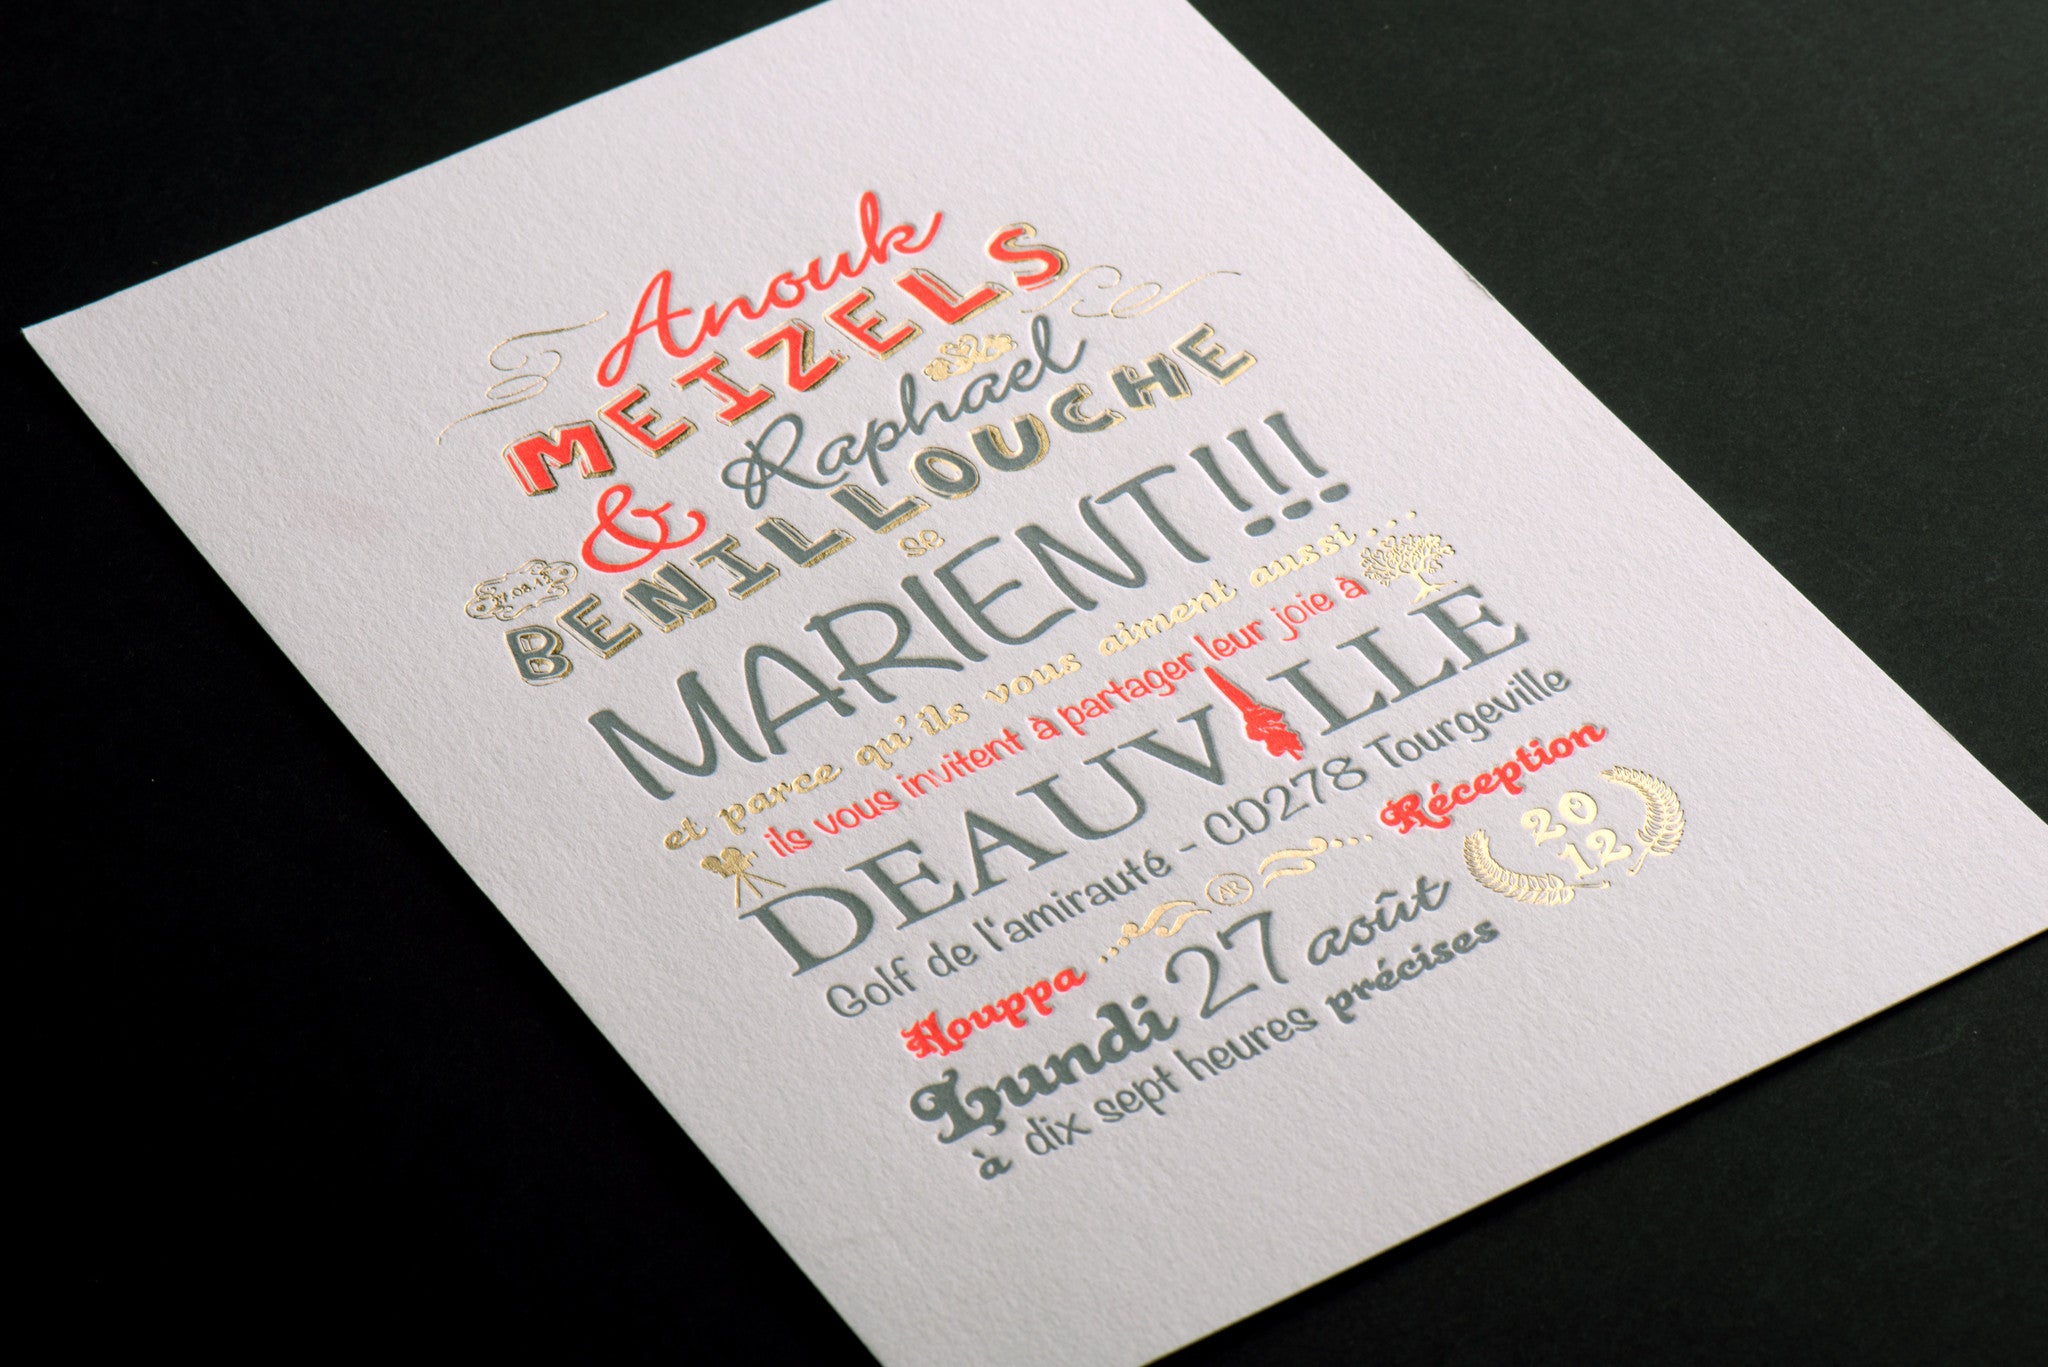 Anouk
MEIZELS
& Raphael
BENILLOUCHE
se
MARIENT!!!
et parce qu'ils vous aiment aussi....
ils vous invitent à partager leur joie à
DEAUVILLE
Golf de l'amirauté - CD278 Tourgeville
Houppa ... AR ... Réception
Lundi 27 août
2012
à dix sept heures précises